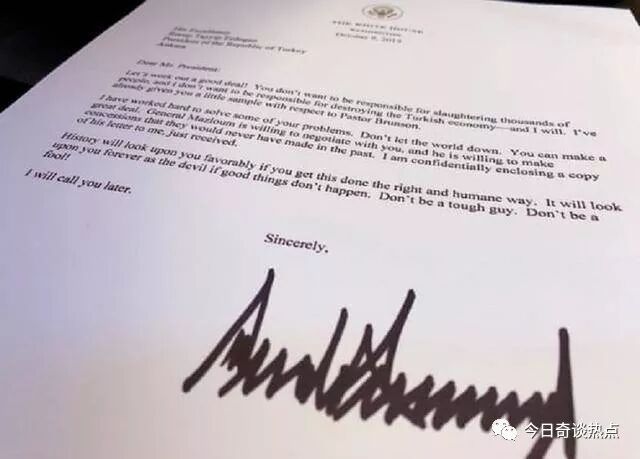 THE WHITE HOUSE
WASHINGTON
October 9, 2019
His Excellency
Recep Tayyip Erdogan
President of the Republic of Turkey
Ankara
Dear Mr. President:
Let's work out a good deal! You don't want to be responsible for slaughtering thousands of
people, and I don't want to be responsible for destroying the Turkish economy—and I will. I've
already given you a little sample with respect to Pastor Brunson.
I have worked hard to solve some of your problems. Don't let the world down. You can make a
great deal. General Mazloum is willing to negotiate with you, and he is willing to make
concessions that they would never have made in the past. I am confidentially enclosing a copy
of his letter to me, just received.
History will look upon you favorably if you get this done the right and humane way. It will look
upon you forever as the devil if good things don't happen. Don't be a tough guy. Don't be a
fool!
I will call you later.
Sincerely,
今日奇谈热点